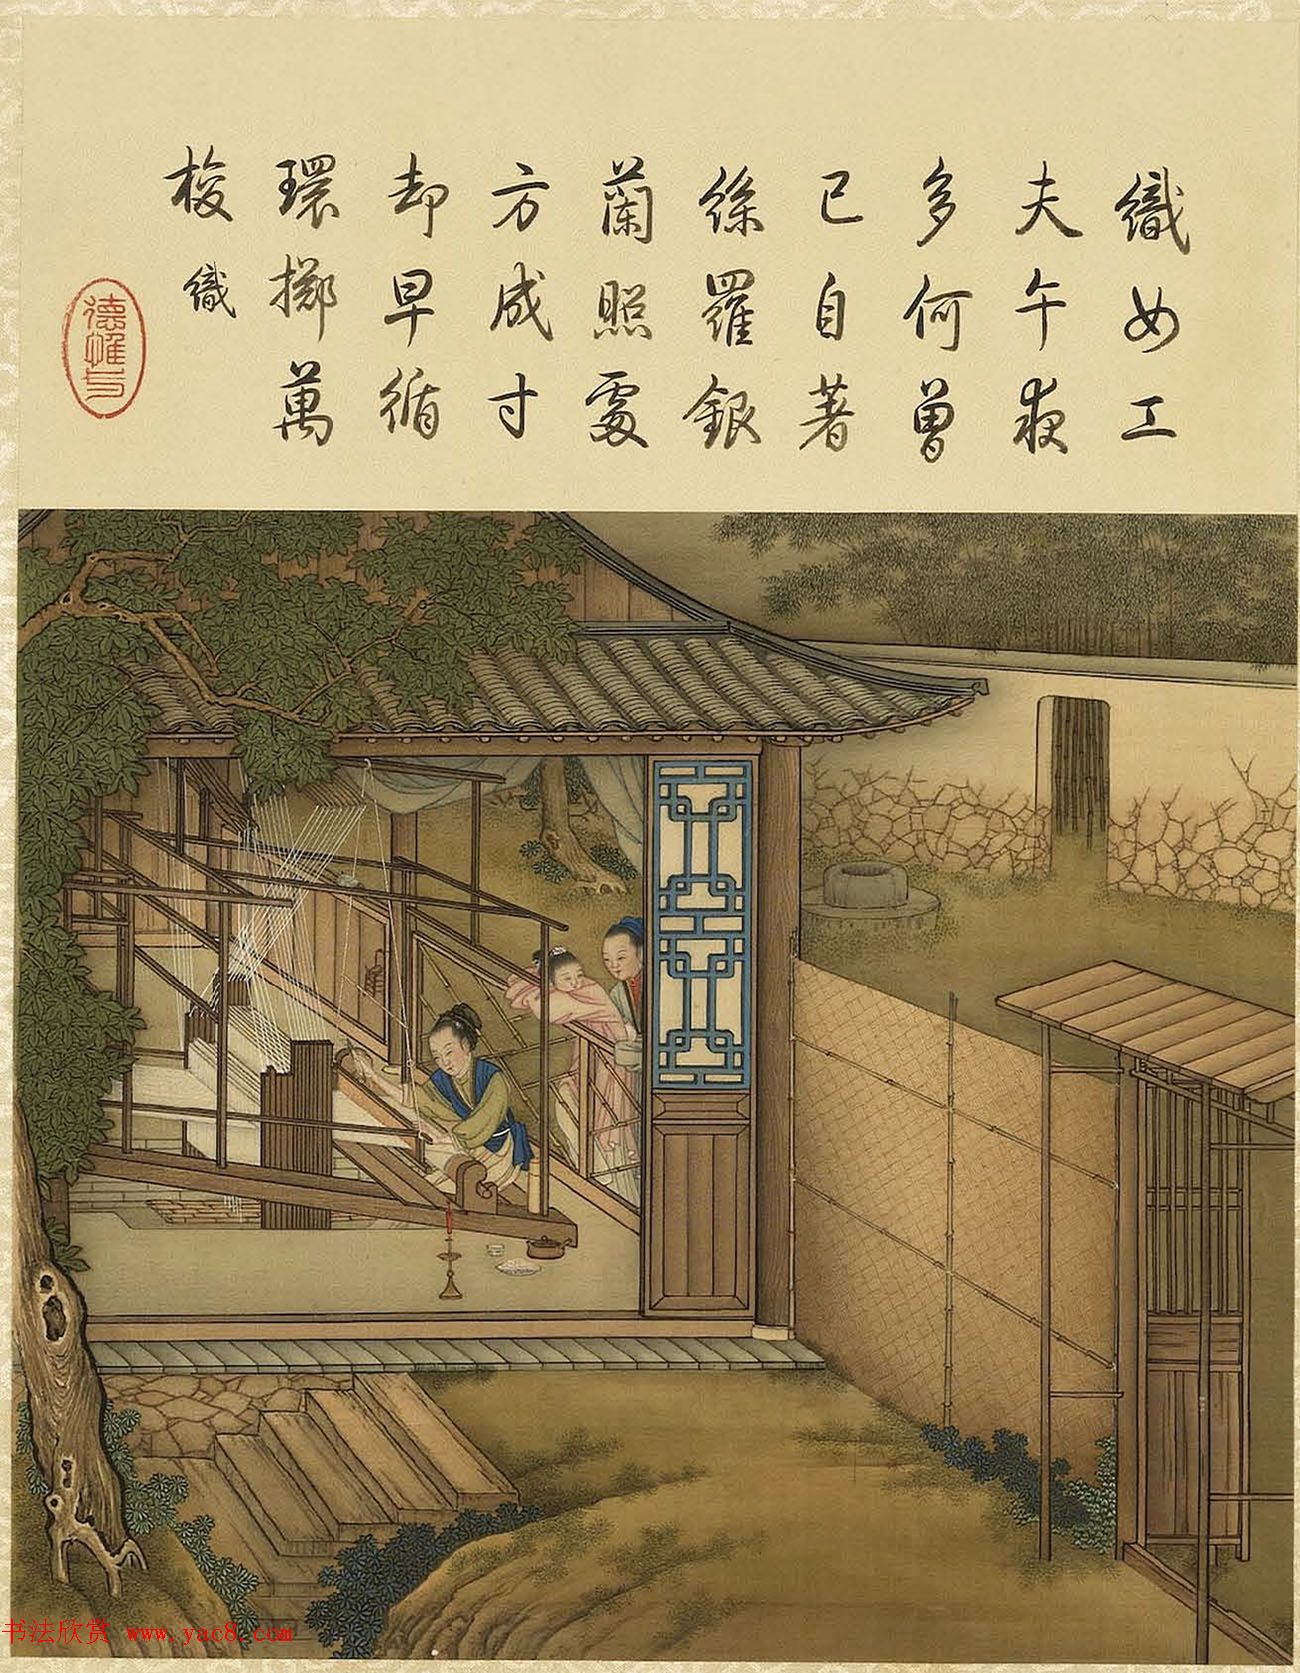 織女工
夫午夜
多何曾
已自著
絲羅銀
蘭照處
方成寸
却早循
環擲萬
梭 織
德惟與
书法欣赏 www.yac8.com